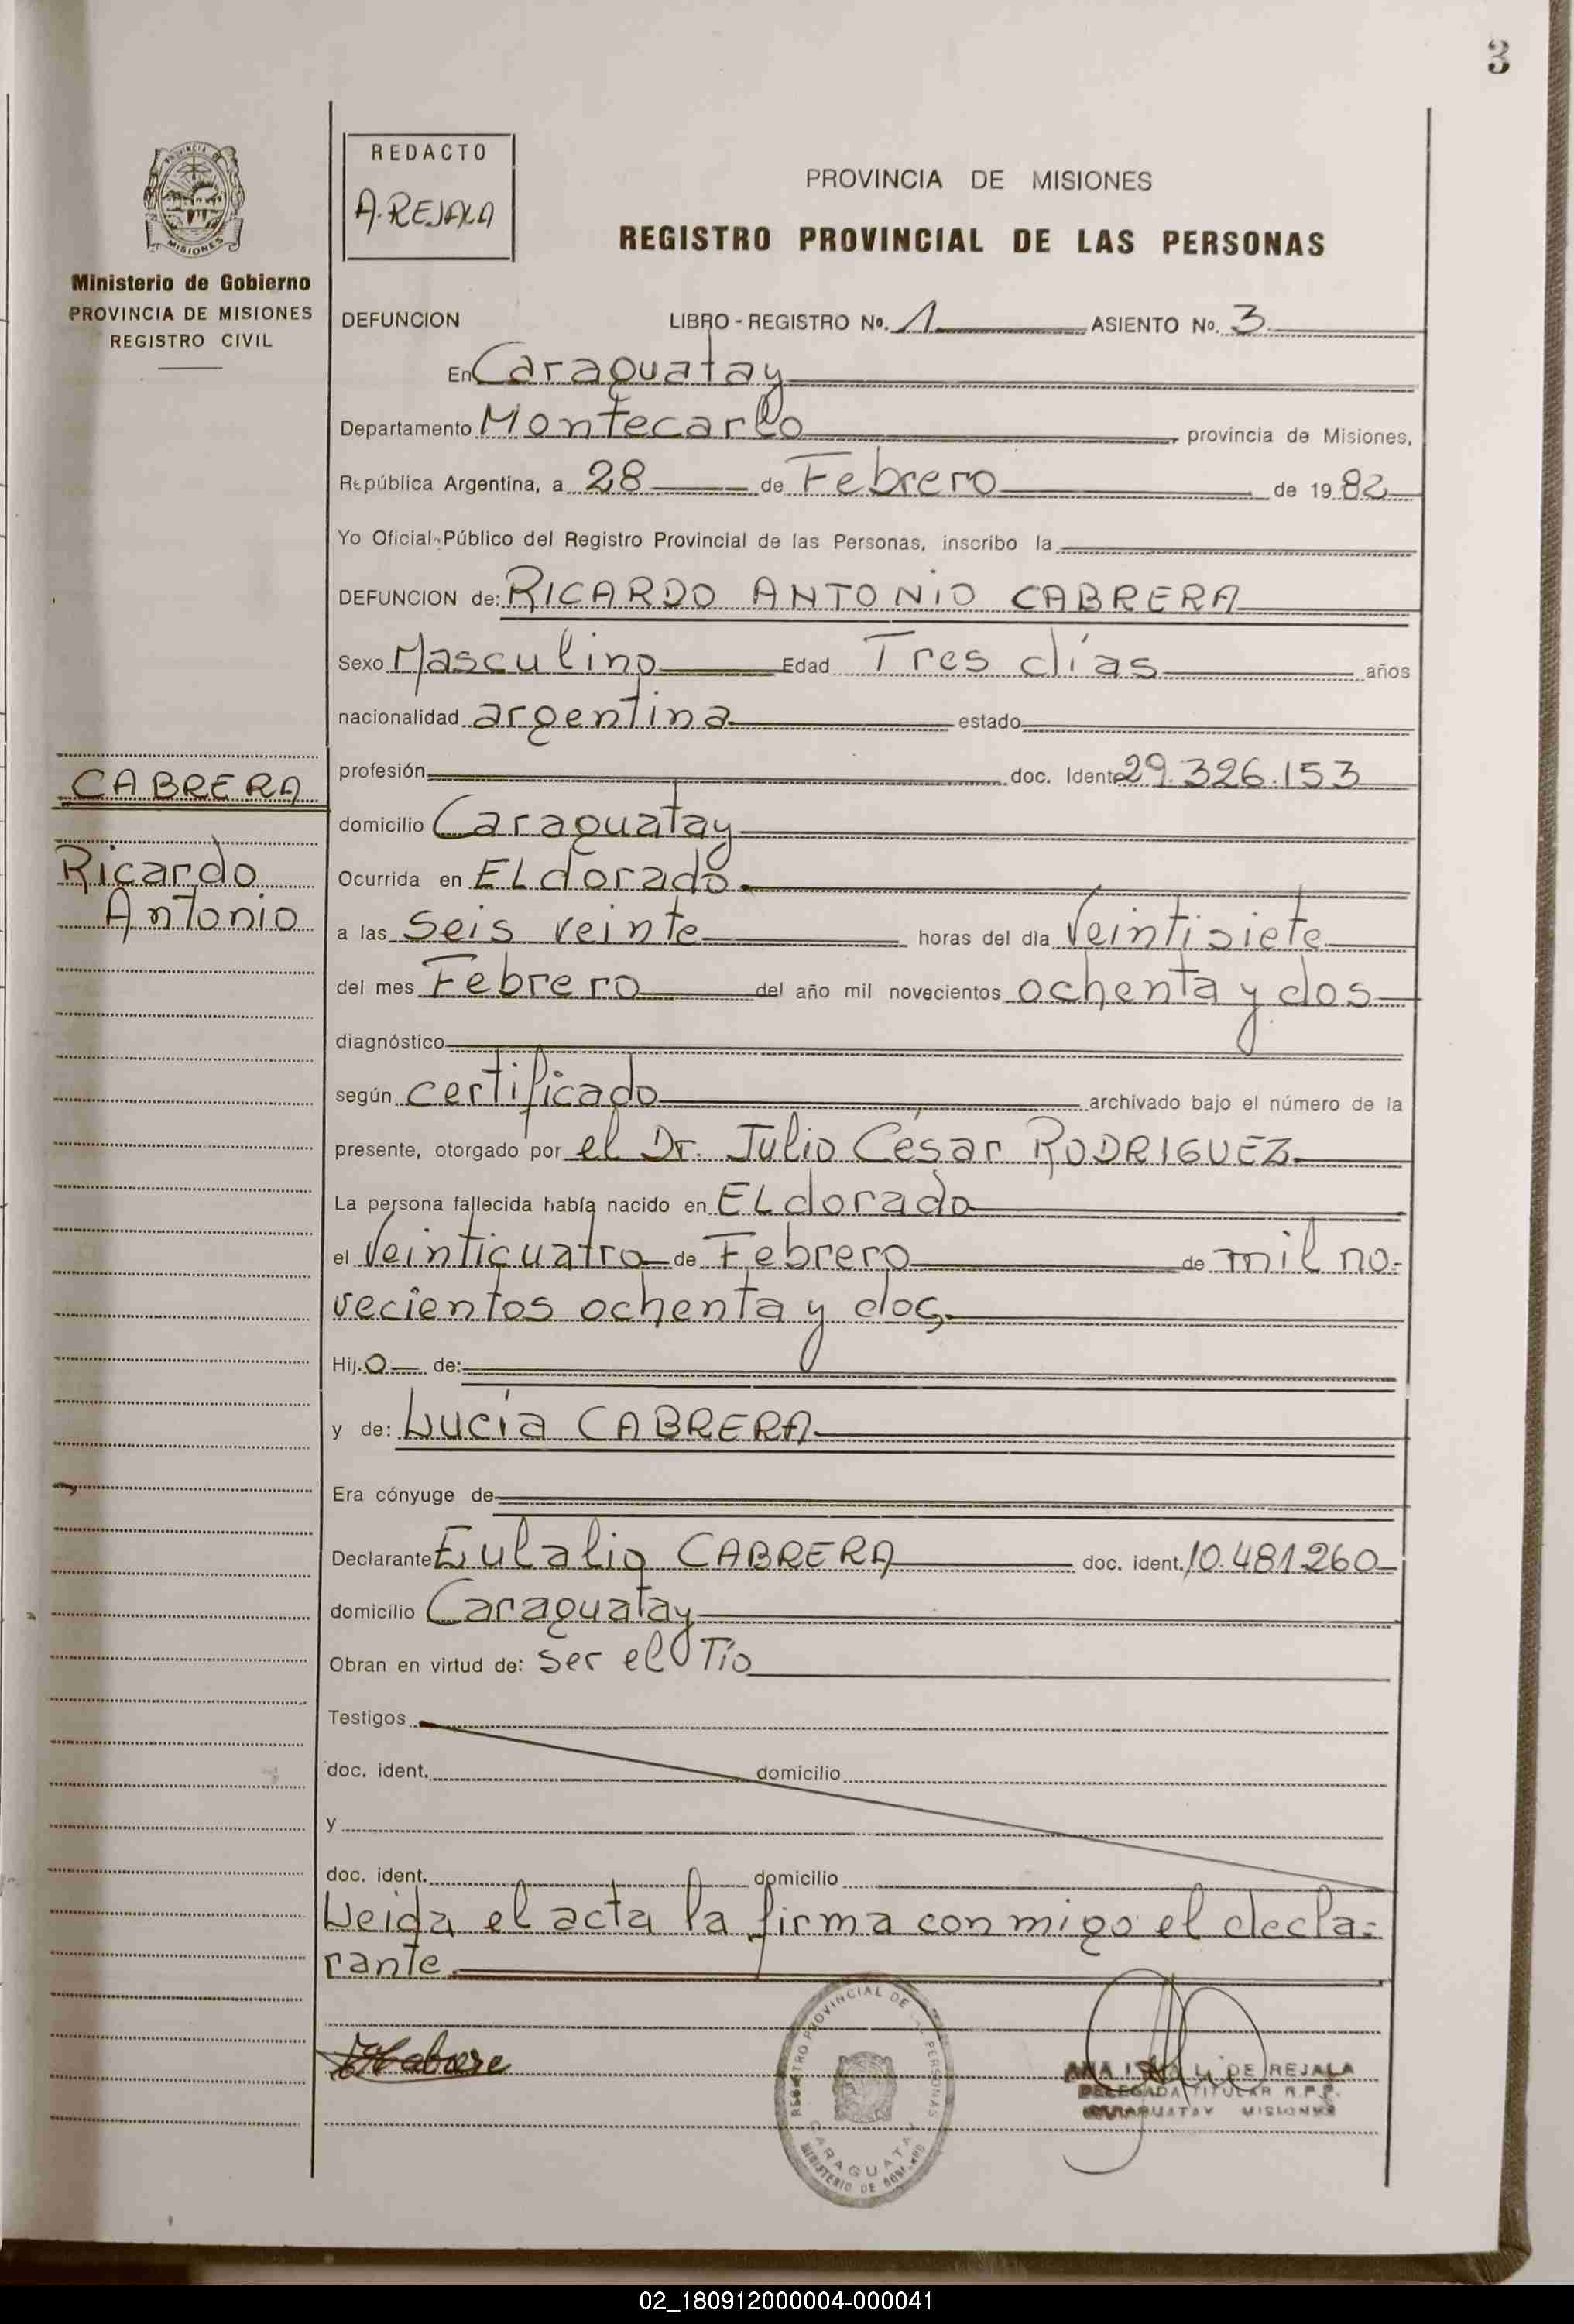 3
PROVINCIA DE
MISIONES
Ministerio de Gobierno
PROVINCIA DE MISIONES
REGISTRO CIVIL
REDACTO
A. REJALA
PROVINCIA DE MISIONES
REGISTRO PROVINCIAL DE LAS PERSONAS
DEFUNCION LIBRO - REGISTRO No. 1 ASIENTO No. 3
En Caraguatay
Departamento Montecarlo provincia de Misiones,
República Argentina, a 28 de Febrero de 1982
Yo Oficial Público del Registro Provincial de las Personas, inscribo la
DEFUNCION de: RICARDO ANTONIO CABRERA
Sexo Masculino Edad Tres días años
nacionalidad argentina estado
CABRERA
Ricardo
Antonio
profesión doc. Ident. 29.326.153
domicilio Caraguatay
Ocurrida en ELdorado.
a las seis veinte horas del día Veintisiete
del mes Febrero del año mil novecientos ochenta y dos
diagnóstico
según certificado archivado bajo el número de la
presente, otorgado por el Dr. Julio César RODRIGUEZ.
La persona fallecida había nacido en ELdorado
el Veinticuatro de Febrero de mil no-
vecientos ochenta y dos.
Hij.o de:
y de: Lucía CABRERA.
Era cónyuge de
Declarante Eulalio CABRERA doc. ident. 10.481.260
domicilio Caraguatay
Obran en virtud de: ser el Tío
Testigos
doc. ident. domicilio
y
doc. ident. domicilio
Leida el acta la firma conmigo el decla-
rante.
REGISTRO PROVINCIAL DE LAS PERSONAS
CARAGUATAY
MINISTERIO DE GOBIERNO
ANA I L. DE REJALA
DELEGADA TITULAR R.P.P.
CARAGUATAY MISIONES
02_180912000004-000041